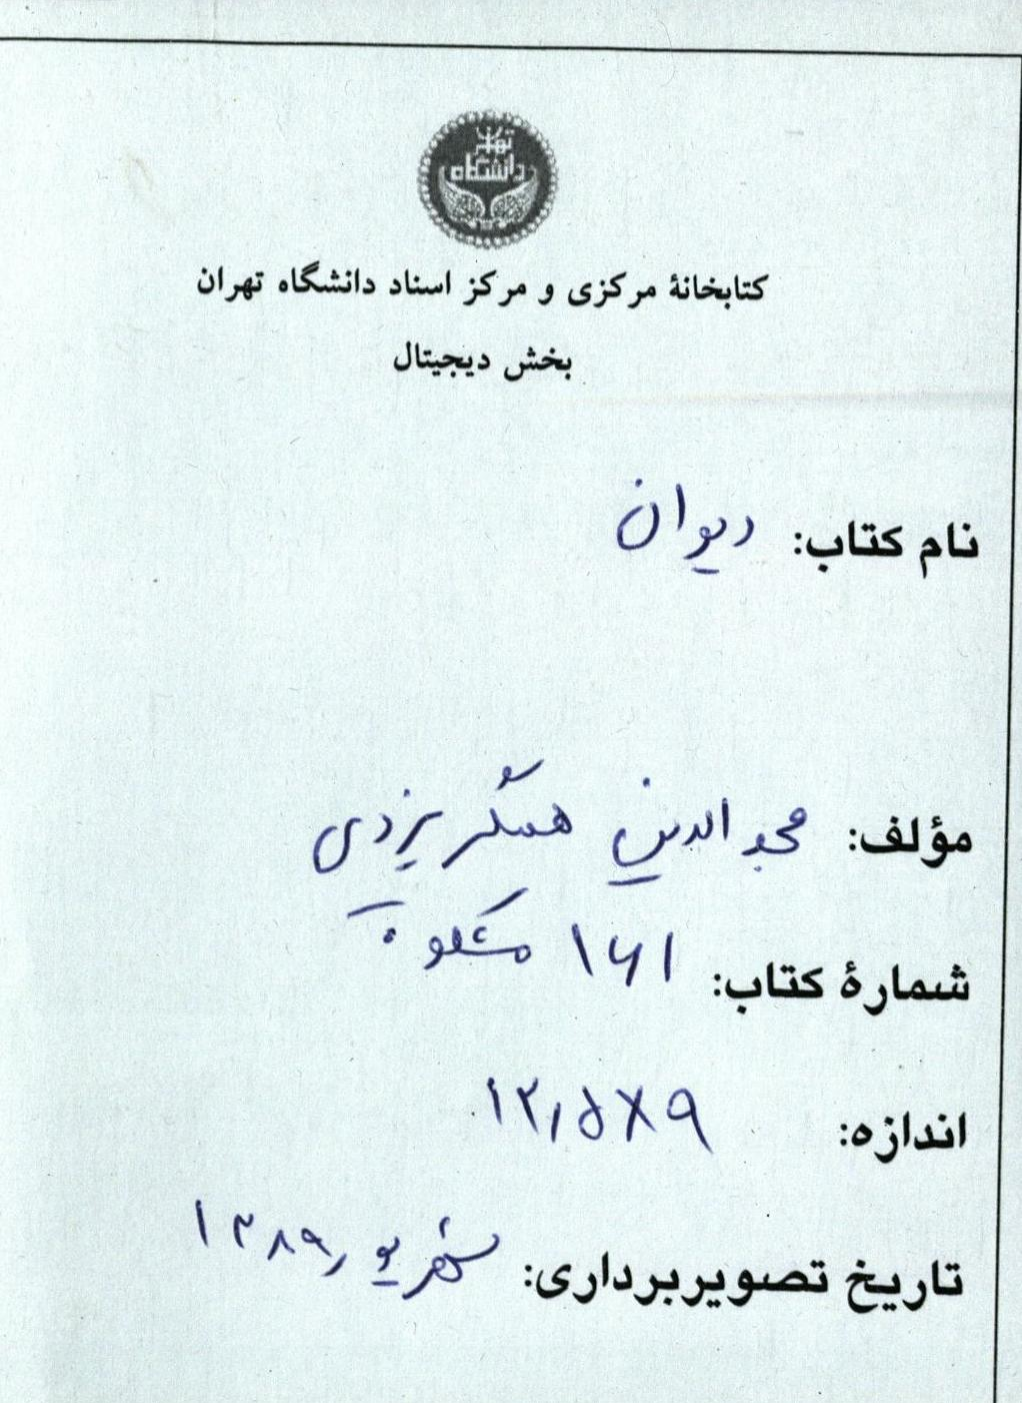 دانشگاه تهران
کتابخانهٔ مرکزی و مرکز اسناد دانشگاه تهران
بخش دیجیتال
نام کتاب: دیوان
مؤلف: مجدالدین همگر یزدی
شمارهٔ کتاب: ۱۶۱ مشکوة
اندازه: ۹×۱۲٫۵
تاریخ تصویربرداری: شهریور ۱۳۸۹